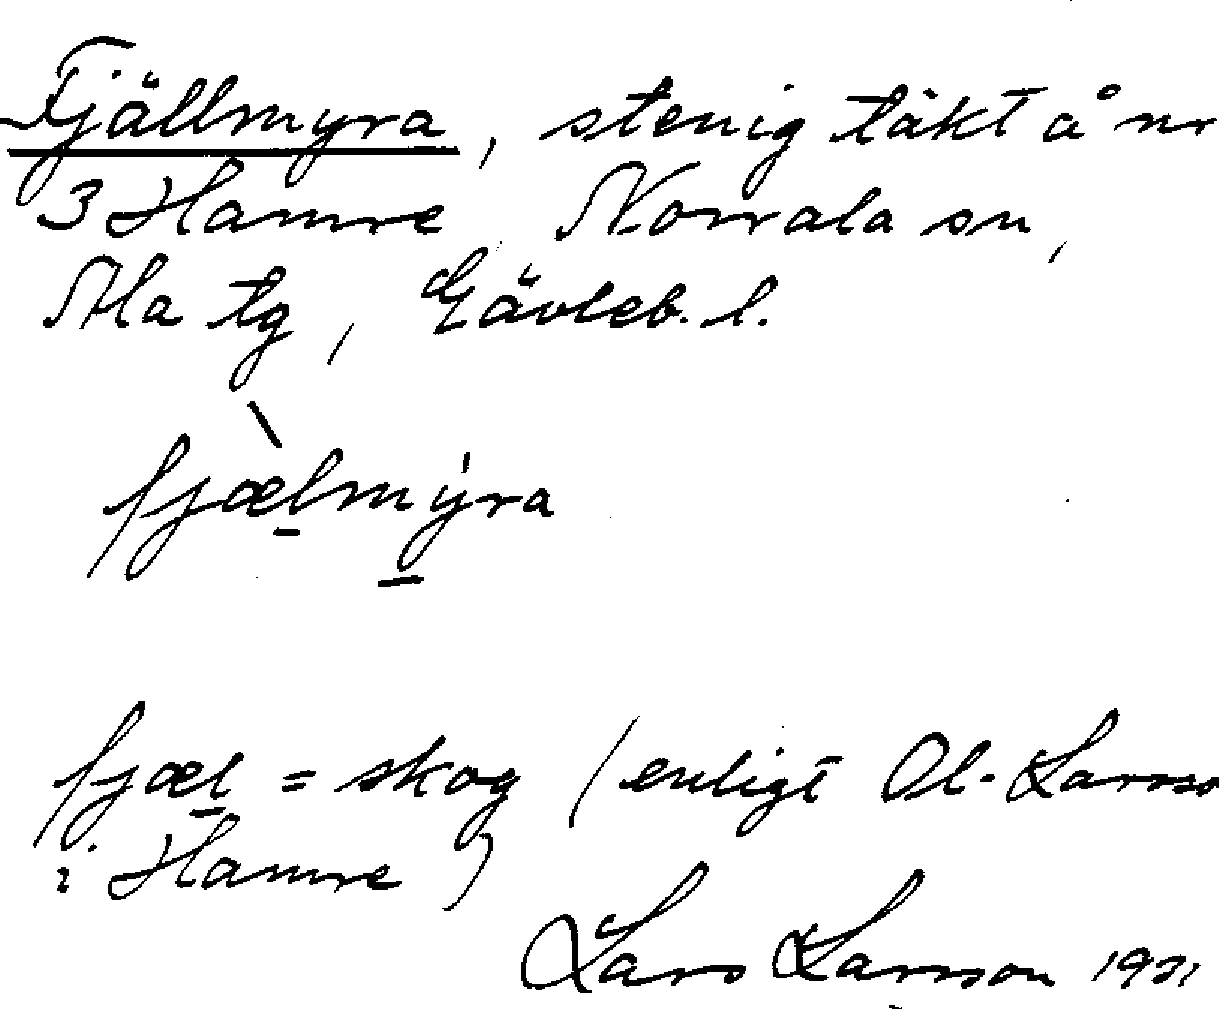 Fjällmyra, stenig täkt å nr
3 Hamre, Norrala sn,
Ala tg, Gävleb. l.
fjæ̀lmy̍ra
fjæl = skog (enligt Ol-Larsso
i Hamre)
Lars Larsson